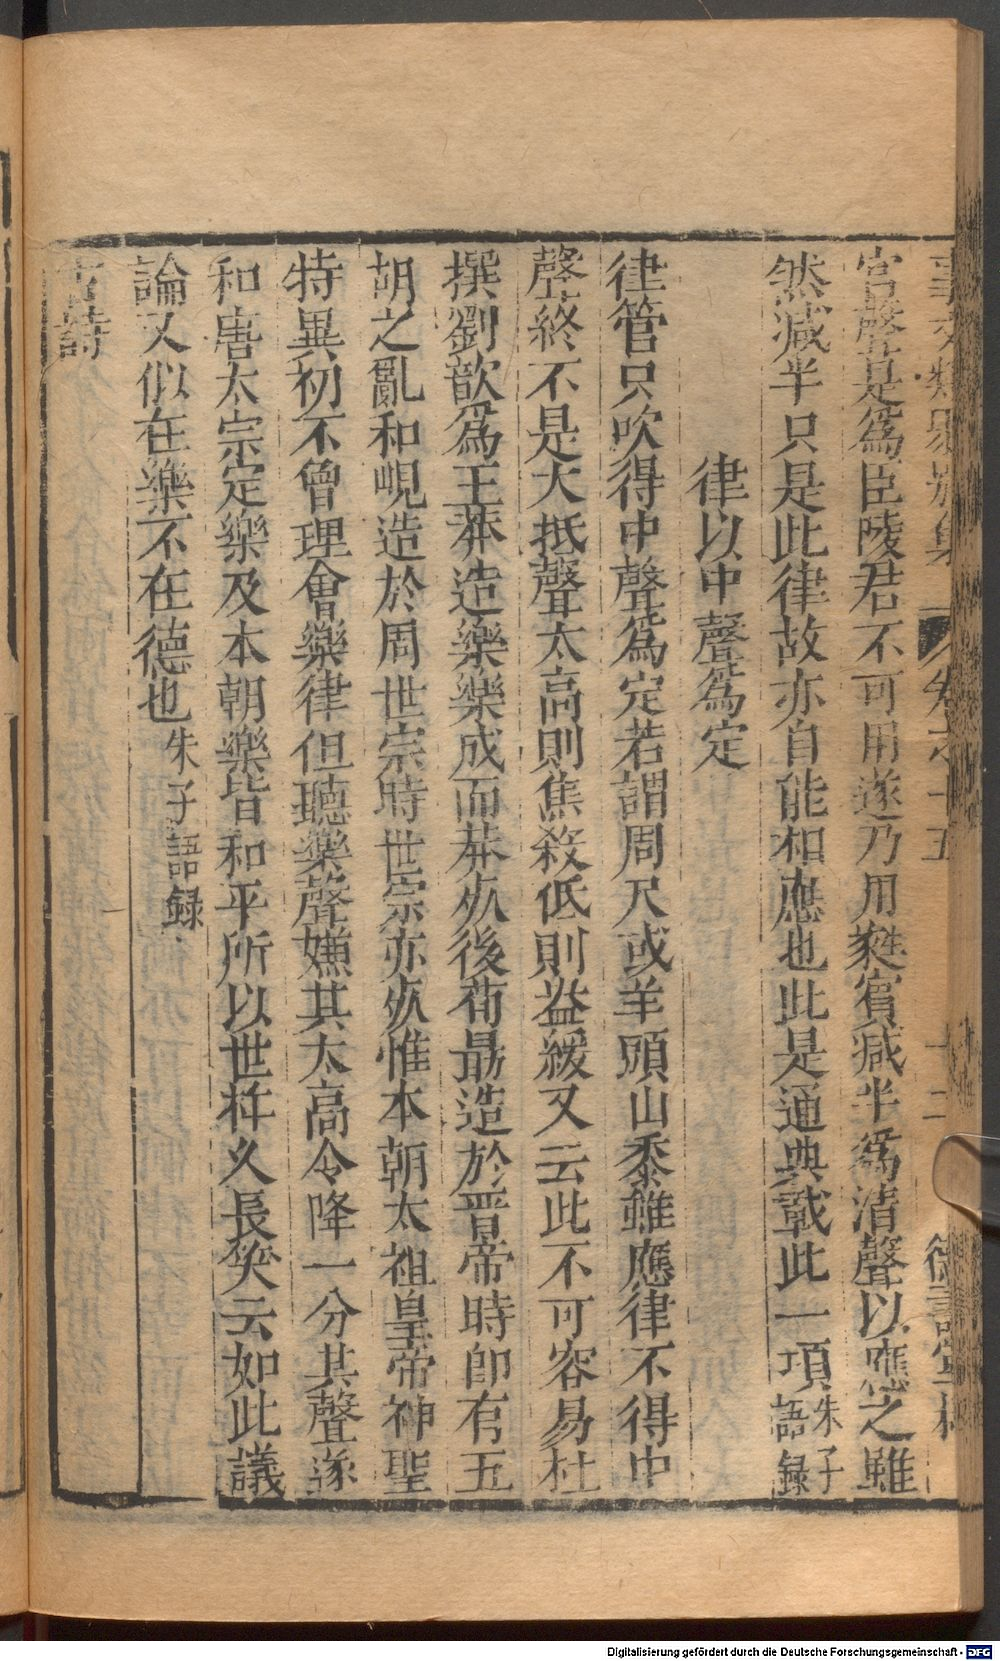 事文類聚別集 卷之十五 十二 德壽堂梓
宮聲是爲臣陵君不可用遂乃用蕤賓減半爲清聲以應之雖
然減半只是此律故亦自能相應也此是通典載此一項朱子語録
律以中聲爲定
律管只吹得中聲爲定若謂周尺或羊頭山黍雖應律不得中
聲終不是大抵聲太高則焦殺低則益緩又云此不可容易杜
撰劉歆爲王莽造樂樂成而莽死後荀勗造於晋帝時即有五
胡之亂和峴造於周世宗時世宗亦死惟本朝太祖皇帝神聖
特異初不曾理會樂律但聽樂聲嫌其太高令降一分其聲遂
和唐太宗定樂及本朝樂皆和平所以世祚久長笑云如此議
論又似在樂不在德也朱子語録
古詩
Digitalisierung gefördert durch die Deutsche Forschungsgemeinschaft - DFG